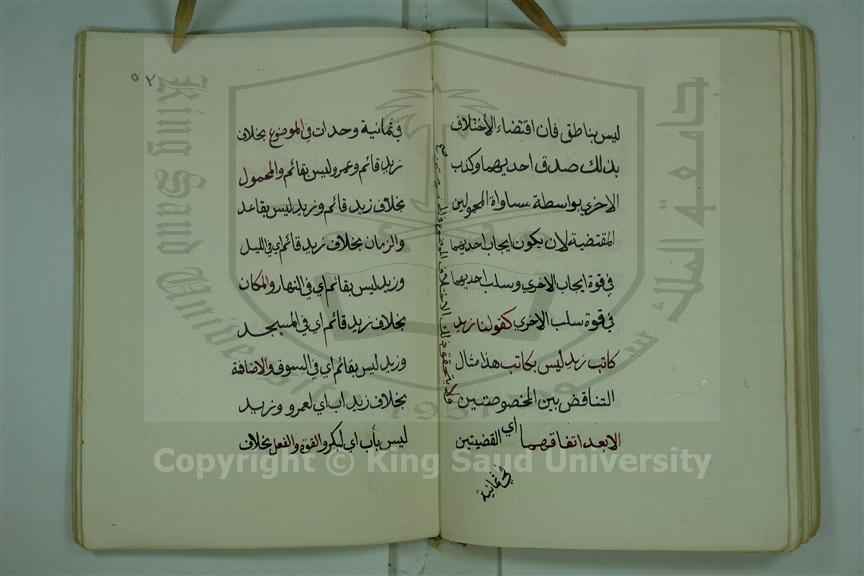 ليس بناطق فان اقتضاء الاختلاف
بذلك صدق احديهما وكذب
الاخري بواسطة مساواة المحمولين
المقتضية لان يكون ايجاب احديهما
في قوة ايجاب الاخري وسلب احديهما
في قوة سلب الاخري كقولنا زيد
كاتب زيد ليس بكاتب هذا مثال
التناقض بين المخصوصتين
الا بعد اتفاقهما اي القضيتين
في ثمانية
ولا يتحقق ذلك الاختلاف الموضوع
٥٢
في ثمانية وحدات في الموضوع بخلاف
زيد قائم وعمرو ليس بقائم والمحمول
بخلاف زيد قائم وزيد ليس بقاعد
والزمان بخلاف زيد قائم اي في الليل
وزيد ليس بقائم اي في النهار والمكان
بخلاف زيد قائم اي في المسجد
وزيد ليس بقائم اي في السوق والاضافة
بخلاف زيد اب اي لعمرو وزيد
ليس بأب اي لبكر والقوة والفعل بخلاف
King Saud University
جامعة الملك سعود
1957
Copyright © King Saud University